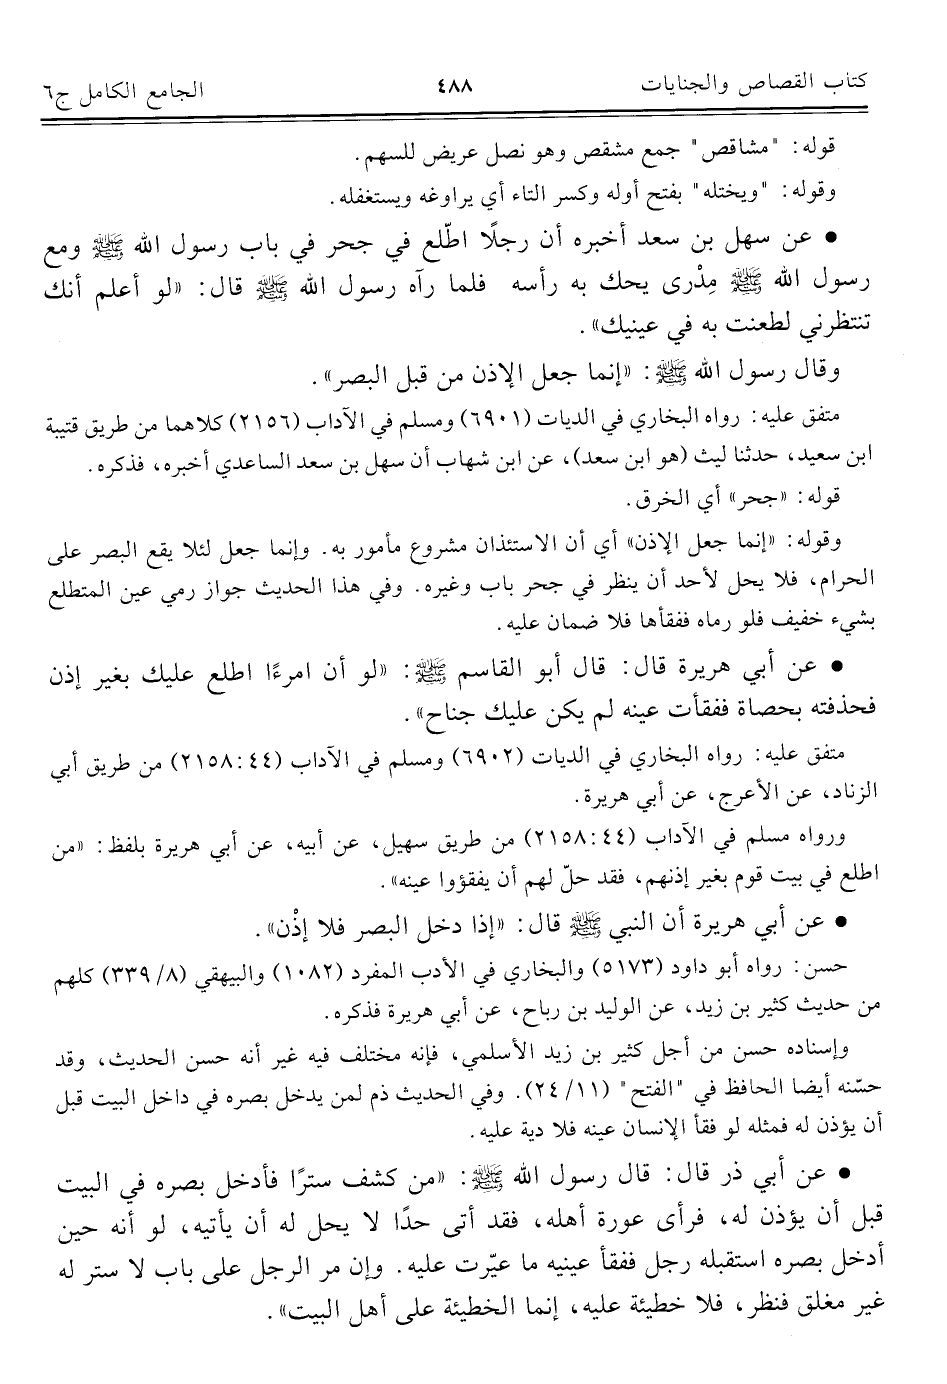 كتاب القصاص والجنايات ٤٨٨ الجامع الكامل ج٦
قوله: "مشاقص" جمع مشقص وهو نصل عريض للسهم.
وقوله: "ويختله" بفتح أوله وكسر التاء أي يراوغه ويستغفله.
• عن سهل بن سعد أخبره أن رجلًا اطّلع في جحر في باب رسول الله ﷺ ومع
رسول الله ﷺ مِدْرى يحك به رأسه فلما رآه رسول الله ﷺ قال: «لو أعلم أنك
تنتظرني لطعنت به في عينيك».
وقال رسول الله ﷺ: «إنما جعل الإذن من قبل البصر».
متفق عليه: رواه البخاري في الديات (٦٩٠١) ومسلم في الآداب (٢١٥٦) كلاهما من طريق قتيبة
ابن سعيد، حدثنا ليث (هو ابن سعد)، عن ابن شهاب أن سهل بن سعد الساعدي أخبره، فذكره.
قوله: «جحر» أي الخرق.
وقوله: «إنما جعل الإذن» أي أن الاستئذان مشروع مأمور به. وإنما جعل لئلا يقع البصر على
الحرام، فلا يحل لأحد أن ينظر في جحر باب وغيره. وفي هذا الحديث جواز رمي عين المتطلع
بشيء خفيف فلو رماه ففقأها فلا ضمان عليه.
• عن أبي هريرة قال: قال أبو القاسم ﷺ: «لو أن امرءًا اطلع عليك بغير إذن
فحذفته بحصاة ففقأت عينه لم يكن عليك جناح».
متفق عليه: رواه البخاري في الديات (٦٩٠٢) ومسلم في الآداب (٢١٥٨:٤٤) من طريق أبي
الزناد، عن الأعرج، عن أبي هريرة.
ورواه مسلم في الآداب (٢١٥٨:٤٤) من طريق سهيل، عن أبيه، عن أبي هريرة بلفظ: «من
اطلع في بيت قوم بغير إذنهم، فقد حلّ لهم أن يفقؤوا عينه».
• عن أبي هريرة أن النبي ﷺ قال: «إذا دخل البصر فلا إذْن».
حسن: رواه أبو داود (٥١٧٣) والبخاري في الأدب المفرد (١٠٨٢) والبيهقي (٣٣٩/٨) كلهم
من حديث كثير بن زيد، عن الوليد بن رباح، عن أبي هريرة فذكره.
وإسناده حسن من أجل كثير بن زيد الأسلمي، فإنه مختلف فيه غير أنه حسن الحديث، وقد
حسّنه أيضا الحافظ في "الفتح" (٢٤/١١). وفي الحديث ذم لمن يدخل بصره في داخل البيت قبل
أن يؤذن له فمثله لو فقأ الإنسان عينه فلا دية عليه.
• عن أبي ذر قال: قال رسول الله ﷺ: «من كشف سترًا فأدخل بصره في البيت
قبل أن يؤذن له، فرأى عورة أهله، فقد أتى حدًا لا يحل له أن يأتيه، لو أنه حين
أدخل بصره استقبله رجل ففقأ عينيه ما عيّرت عليه. وإن مر الرجل على باب لا ستر له
غير مغلق فنظر، فلا خطيئة عليه، إنما الخطيئة على أهل البيت».